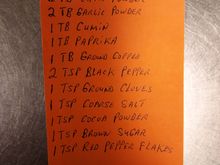 2 TB GARLIC POWDER
1 TB CUMIN
1 TB PAPRIKA
1 TB GROUND COFFEE
2 TSP BLACK PEPPER
1 TSP GROUND CLOVES
1 TSP COARSE SALT
1 TSP COCOA POWDER
1 TSP BROWN SUGAR
1 TSP RED PEPPER FLAKES